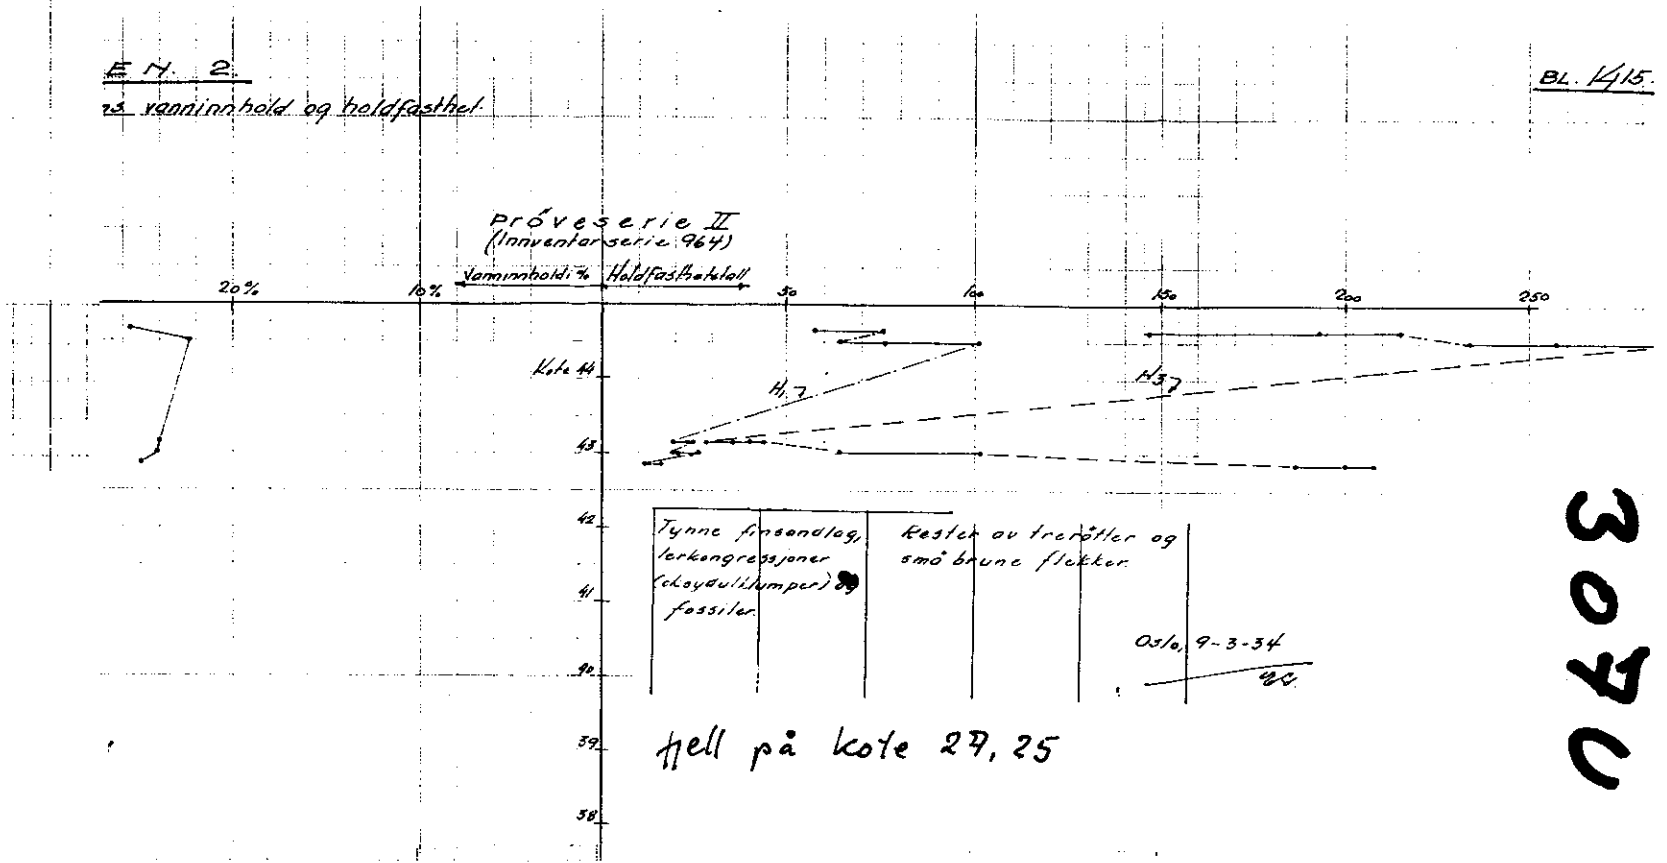 E N. 2.
ns. vanninnhold og holdfasthet.
BL. 1415.
Prøveserie II
(Innventarserie 964)
Vanninnhold i % Holdfasthetstall
20% 10% 50 100 150 200 250
Kote 44
H1
H3
43
42
41
40
39
38
Tynne finsandlag,
lerkongressjoner
og
fossiler.
Rester av trerøtter og
små brune flekker.
Oslo, 9-3-34
fjell på kote 27,25
3070